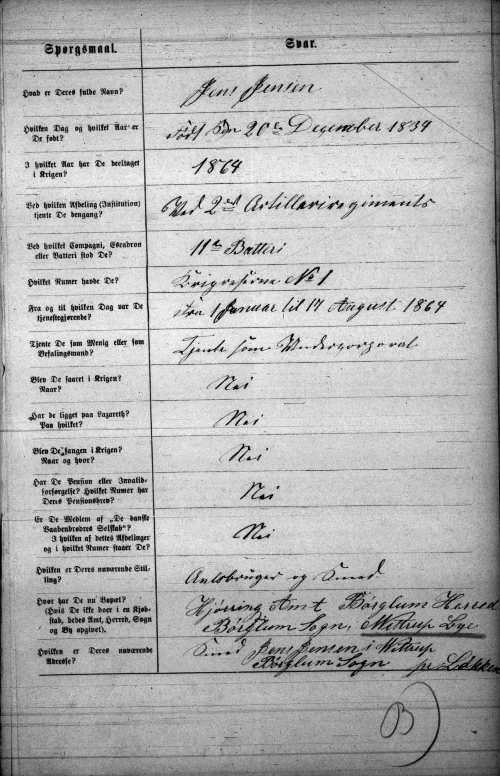 Spørgsmaal.
Svar.
Hvad er Deres fulde Navn?
Jens Jensen
Hvilken Dag og hvilket Aar er
De født?
Født den 20de December 1834
I hvilket Aar har De deeltaget
i Krigen?
1864
Ved hvilken Afdeling (Institution)
tjente De dengang?
Ved 2det Artilleriregiments
Ved hvilket Compagni, Escadron
eller Batteri stod De?
11te Batteri
Hvilket Numer havde De?
Krigreserve No 1
Fra og til hvilken Dag var De
tjenestegjørende?
Fra 1 Januar til 17 August 1864
Tjente De som Menig eller som
Befalingsmand?
Tjente som Undercorporal
Blev De saaret i Krigen?
Naar?
Nei
Har De ligget paa Lazareth?
Paa hvilket?
Nei
Blev De fangen i Krigen?
Naar og hvor?
Nei
Har De Pension eller Invalid-
forsørgelse? Hvilket Numer har
Deres Pensionsbrev?
Nei
Er De Medlem af „De danske
Vaabenbrødres Selskab"?
I hvilken af dettes Afdelinger
og i hvilket Numer staaer De?
Nei
Hvilken er Deres nuværende Stil-
ling?
Avlsbruger og Smed
Hvor har De nu Bopæl?
(Hvis De ikke boer i en Kjøb-
stad, bedes Amt, Herred, Sogn
og By opgivet).
Hjørring Amt Børglum Herred
Børglum Sogn, Wittrup Bye
Hvilken er Deres nuværende
Adresse?
Smed Jens Jensen i Wittrup
Børglum Sogn pr Løkken
B